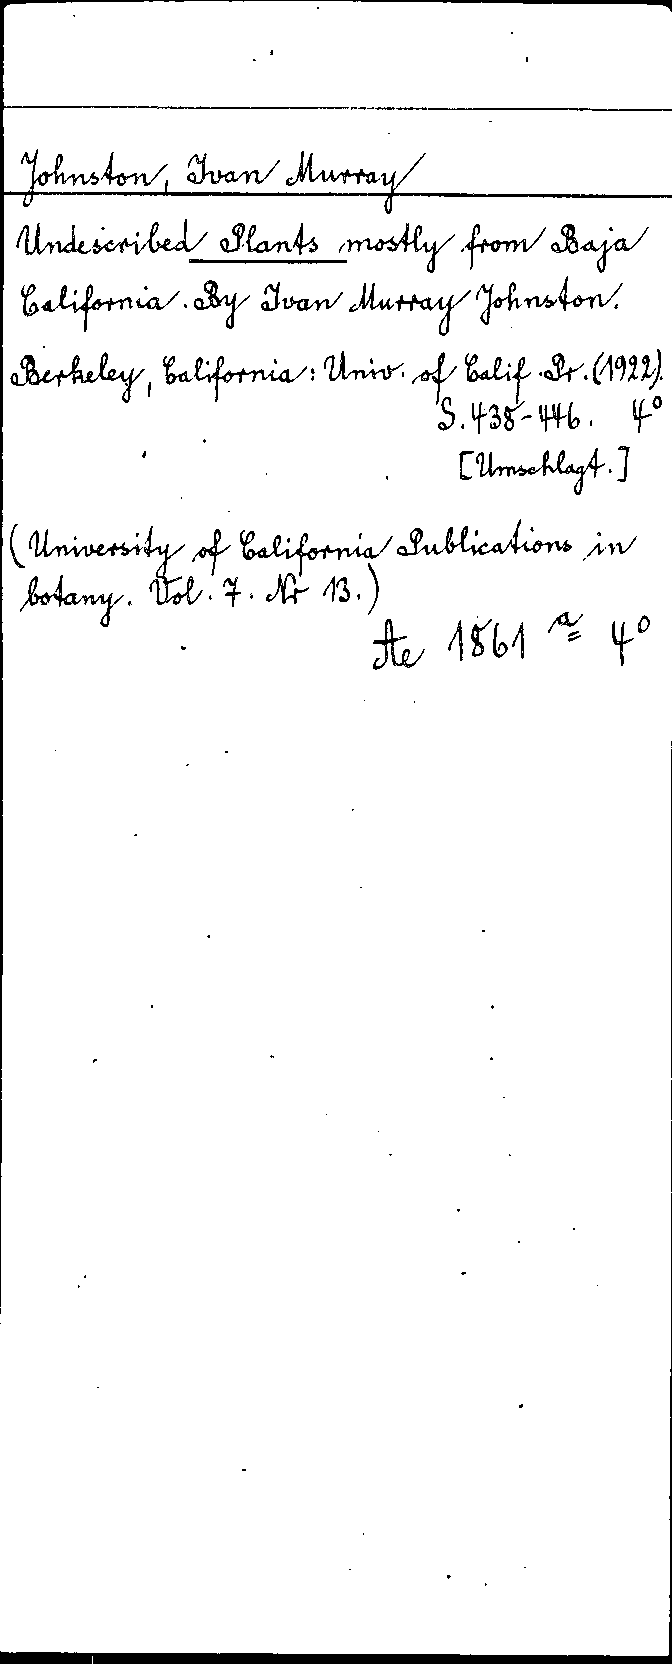 Johnston, Ivan Murray
Undescribed Plants mostly from Baja
California. By Ivan Murray Johnston.
Berkeley, California: Univ. of Calif. Pr. (1922).
S. 438-446. 4°
[Umschlagt.]
(University of California Publications in
botany. Vol. 7. Nr 13.)
Ae 1861 a= 4°